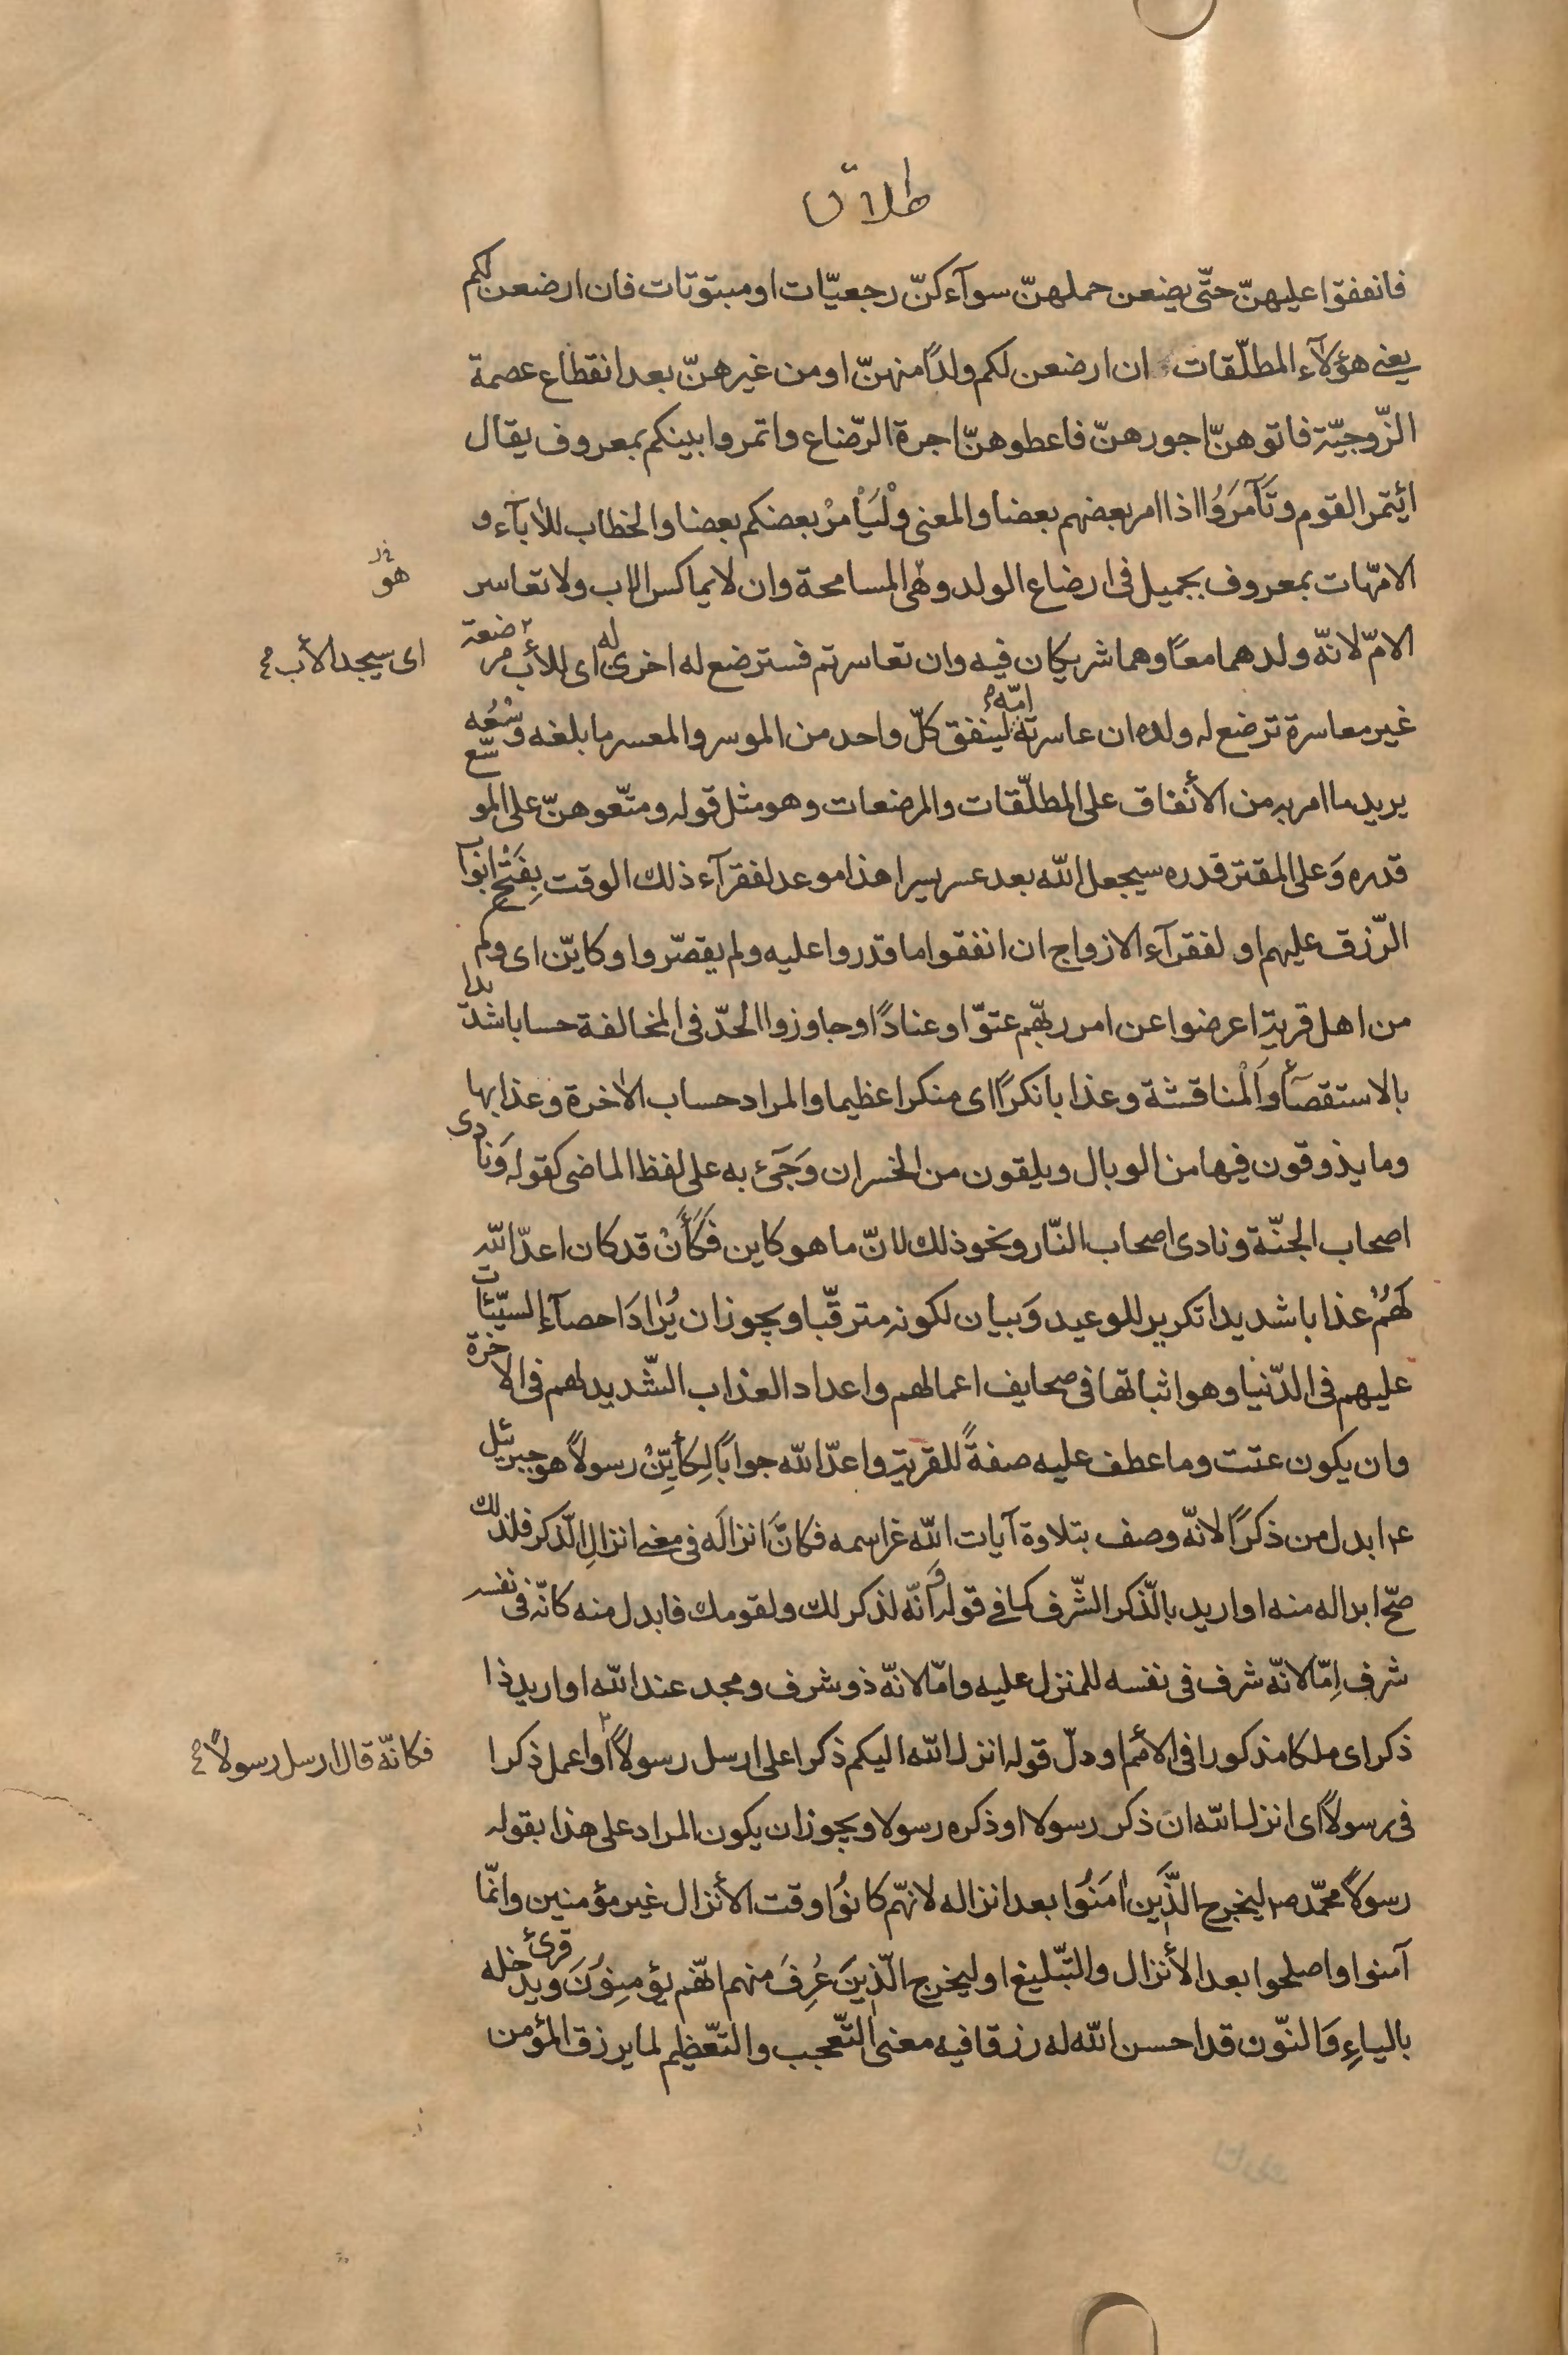 طلاق
فانفقوا عليهنّ حتّى يضعن حملهنّ سوآء كنّ رجعيّات او مبتوتات فان ارضعن لكم
يعنى هؤلآء المطلّقات ان ارضعن لكم ولدًا منهنّ او من غيرهنّ بعد انقطاع عصمة
الزّوجيّة فاتوهنّ اجورهنّ فاعطوهنّ اجرة الرّضاع واتمروا بينكم بمعروف يقال
ائتمر القوم وتَآمَرَوُا اذا امر بعضهم بعضا والمعنى وْلَيَأْمرْ بعضكم بعضا والخطاب للاٰبآء و
الامّهات بمعروف بجميل فى ارضاع الولد وهى المسامحة وان لا يماكس الاب ولا تعاسر
هو خ‍ر
الامّ لانّه ولدهما معًا وهما شريكان فيه وان تعاسرتم فسترضع له اخرى له اى للأب مرضعة
اى سيجد الأب
غير معاسرة ترضع له ولده ان عاسرته امّه لينفق كلّ واحد من الموسر والمعسر ما بلغه وُسْعُه
يريد ما امر به من الأنفاق على المطلّقات والمرضعات وهو مثل قوله ومتّعوهنّ على الموسّع
قدره وَعلى المقتر قدره سيجعل الله بعد عسر يسرا هذا موعد لفقرآء ذلك الوقت بِفَتْح ابوآب
الرّزق عليهم او لفقرآء الازواج ان انفقوا ما قدروا عليه ولم يقصّروا وكايّن اى وكم
من اهل قرية اعرضوا عن امر ربّهم عتوّا وعنادًا وجاوزوا الحدّ فى المخالفة حسابا شديدا
بالاستقصآء وَاَلْمناقشة وعذابا نكرًا اى منكرا عظيما والمراد حساب الاٰخرة وعذابها
وما يذوقون فيها من الوبال ويلقون من الخسران وَجَئ به على لفظ الماضى كقوله وَنادى
اصحاب الجنّة ونادى اصحاب النّار ونحو ذلك لانّ ما هو كاين فَكَأَنْ قد كان اعدّ الله
لَهُمْ عذابا شديدا تكرير للوعيد وَبيان لكونه مترقّبا ويجوز ان يُرادَ احصآء السيّئات
عليهم فى الدّنيا وهو اثباتها فى صحايف اعمالهم واعداد العذاب الشّديد لهم فى الاخرة
وان يكون عتت وما عطف عليه صفةً للقرية واعدّ الله جوابًا لِكَأَيِّنْ رسولاً هو جبرئيل
ع‍م ابدل من ذكرًا لانّه وصف بتلاوة آيات الله عز اسمه فكانَّ انزالَه فى معنى انزالِ الّذكر فلذلك
صحّ ابداله منه او اريد بالّذكر الشّرف كما فى قوله وانّه لذكر لك ولقومك فابدل منه كانّه فى نفسه
شرف اِمّا لانّه شرف فى نفسه للمنزل عليه وامّا لانّه ذو شرف ومجد عند الله او اريد ذا
ذكر اى ملكا مذكورا فى الأمم او دلّ قوله انزل الله اليكم ذكرا على ارسل رسولاً او اعمل ذكرا
فكانّه قال ارسل رسولاً
فى رسولاً اى انزل الله ان ذكر رسولا او ذكره رسولا ويجوز ان يكون المراد على هذا بقوله
رسولاً محمّد ص‍م ليخرج الذَّيَن اٰمَنُوا بعد انزاله لانّهم كانوُا وقت الأنزال غير مؤمنين وانّما
آمنوا واصلحوا بعد الأنزال والتّبليغ او ليخرج الّذينَ عُرِفَ منهم انّهم يؤمنِوُنَ قرئ ويدخله
بالياءِ وَالنّون قد احسن الله له رزقا فيه معنى التّعجب والتعّظيم لما يرزق المؤمن